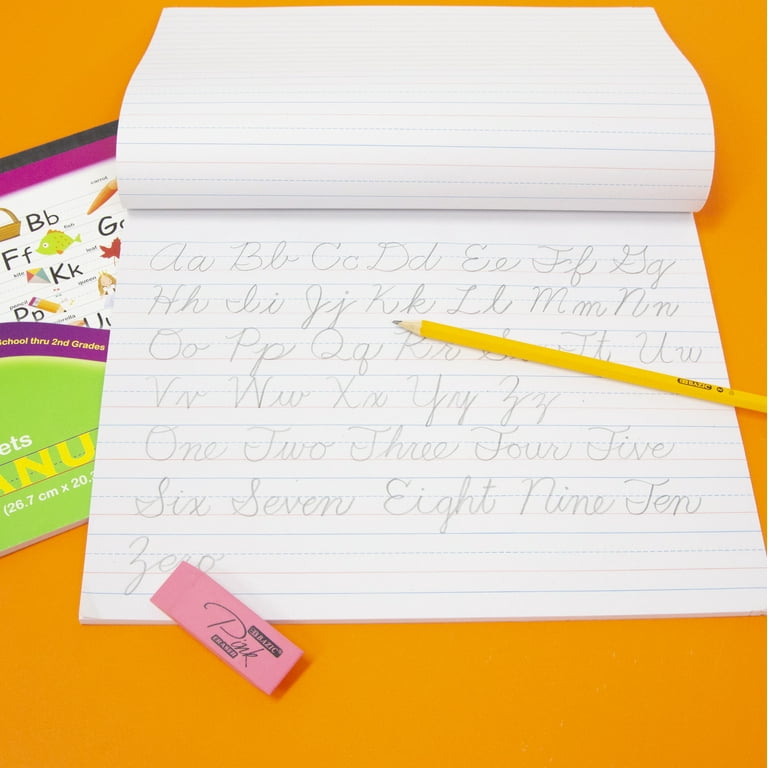 Aa Bb Cc Dd Ee Ff Gg
Hh Ii Jj Kk Ll Mm Nn
Oo Pp Qq Rr Ss Tt Uu
Vv Ww Xx Yy Zz
One Two Three Four Five
Six Seven Eight Nine Ten
Zero
BAZIC
Pink
ERASER
BAZIC
carrot
Bb
fish
Ff
leaf
kite
Kk
queen
pencil
Pp
School thru 2nd Grades
ets
ANU
(26.7 cm x 20.